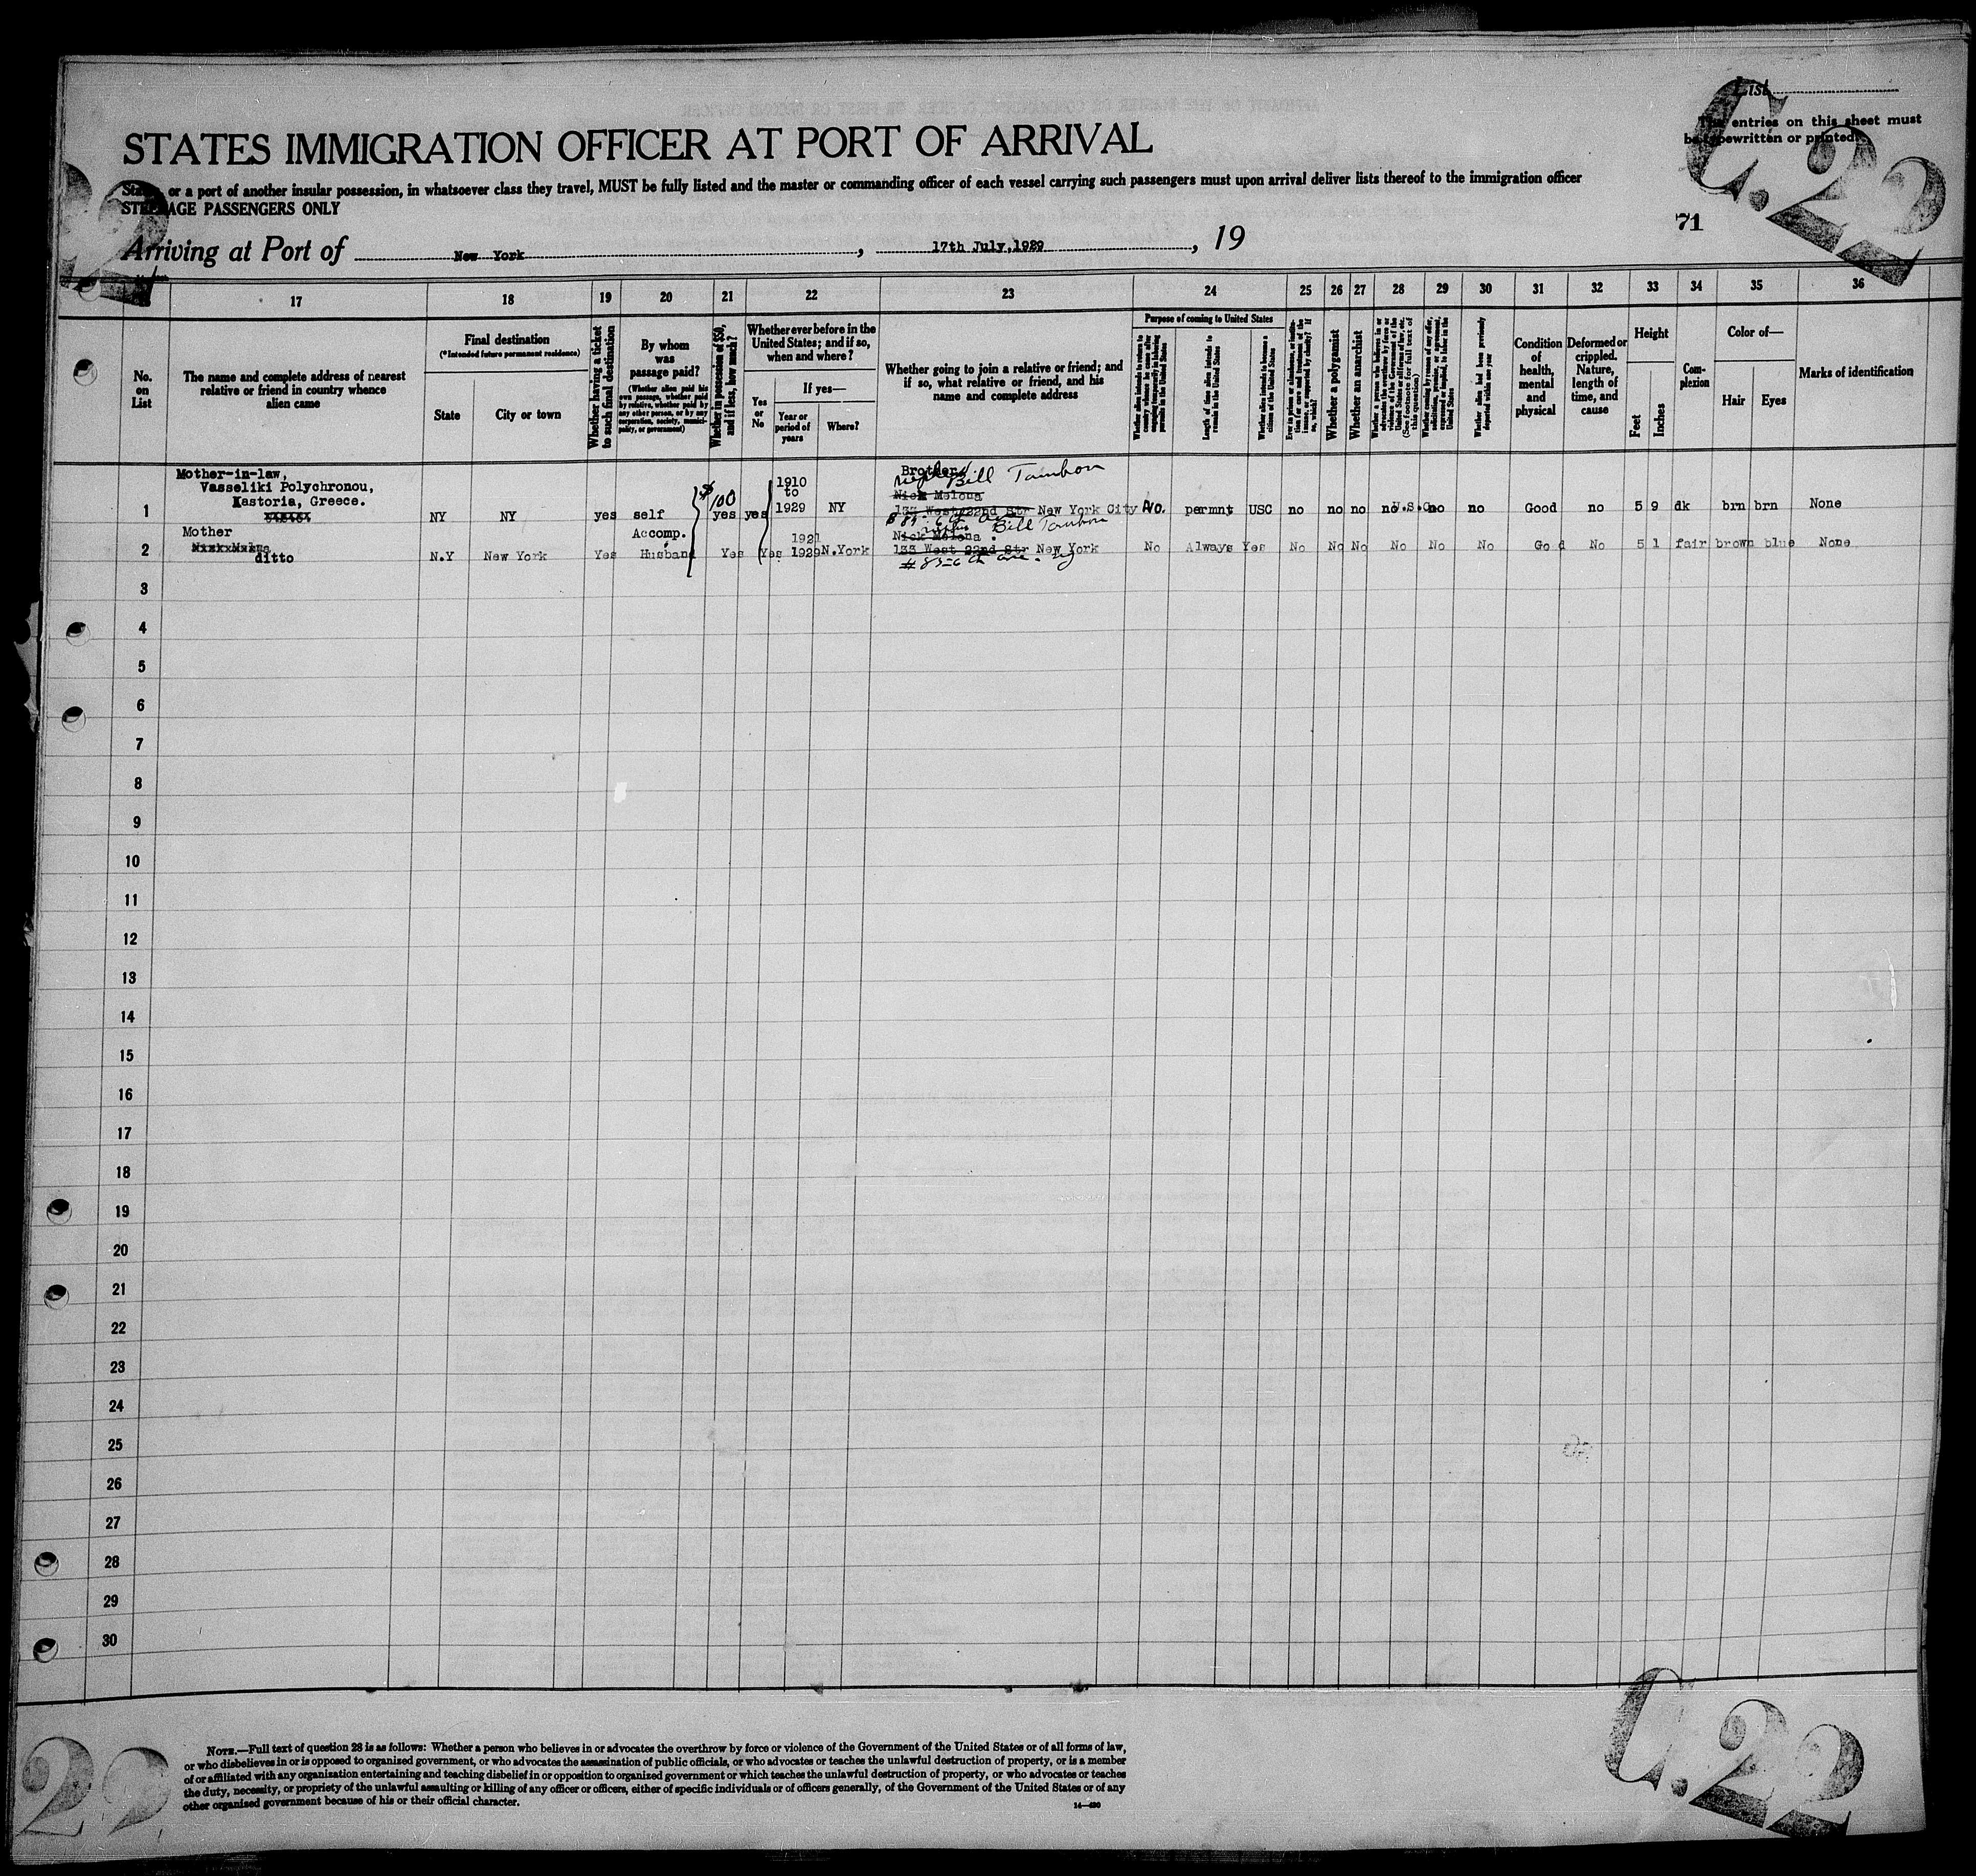 List
The entries on this sheet must
be typewritten or printed.
C.22
STATES IMMIGRATION OFFICER AT PORT OF ARRIVAL
States, or a port of another insular possession, in whatsoever class they travel, MUST be fully listed and the master or commanding officer of each vessel carrying such passengers must upon arrival deliver lists thereof to the immigration officer
STEERAGE PASSENGERS ONLY
71
Arriving at Port of New York, 17th July, 1929, 19
17 18 19 20 21 22 23 24 25 26 27 28 29 30 31 32 33 34 35 36
No. on List
The name and complete address of nearest relative or friend in country whence alien came
Final destination
(*Intended future permanent residence)
State
City or town
Whether having a ticket to such final destination
By whom was passage paid?
(Whether alien paid his own passage, whether paid by relative, whether paid by any other person, or by any corporation, society, municipality, or government)
Whether in possession of $50, and if less, how much?
Whether ever before in the United States; and if so, when and where?
Yes or No
If yes—
Year or period of years
Where?
Whether going to join a relative or friend; and if so, what relative or friend, and his name and complete address
Purpose of coming to United States
Length of time alien intends to remain in the United States
Whether alien intends to become a citizen of the United States
Whether a polygamist
Whether an anarchist
(See footnote for full text of this question)
Whether alien had been previously deported within one year
Condition of health, mental and physical
Deformed or crippled. Nature, length of time, and cause
Height
Feet
Inches
Complexion
Color of—
Hair
Eyes
Marks of identification
Mother-in-law,
Vasseliki Polychronou,
Kastoria, Greece.
1 NY NY yes self $100 yes yes 1910 to 1929 NY
Brother
Bill Tambon
Nick Melona
133 West 22nd Str New York City
No. permnt USC no no no no U.S.C. no no Good no 5 9 dk brn brn None
Mother
2 ditto N.Y New York Yes Accomp. Husband Yes Yes 1921 1929 N.York
Bill Tambon
Nick Melona
133 West 22nd Str New York
No Always Yes No No No No No No Good No 5 1 fair brown blue None
3
4
5
6
7
8
9
10
11
12
13
14
15
16
17
18
19
20
21
22
23
24
25
26
27
28
29
30
22
C.22
NOTE.—Full text of question 28 is as follows: Whether a person who believes in or advocates the overthrow by force or violence of the Government of the United States or of all forms of law,
or who disbelieves in or is opposed to organized government, or who advocates the assassination of public officials, or who advocates or teaches the unlawful destruction of property, or is a member
of or affiliated with any organization entertaining and teaching disbelief in or opposition to organized government or which teaches the unlawful destruction of property, or who advocates or teaches
the duty, necessity, or propriety of the unlawful assaulting or killing of any officer or officers, either of specific individuals or of officers generally, of the Government of the United States or of any
other organized government because of his or their official character.
14—430